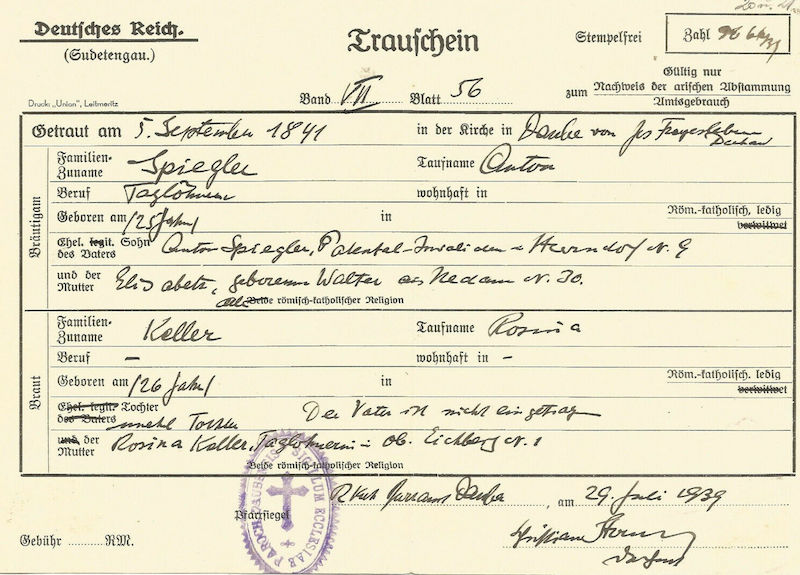 Deutsches Reich.
(Sudetengau.)
Trauschein
Stempelfrei
Zahl
Gültig nur
zum Nachweis der arischen Abstammung
Amtsgebrauch
Druck: „Union", Leitmeritz
Band VII Blatt 56
Getraut am 5. September 1841 in der Kirche in Daube von
Bräutigam
Familien-Zuname Spiegler Taufname Anton
Beruf Taglöhner wohnhaft in
Geboren am /25 Jahr/ in Röm.-katholisch, ledig verwitwet
Ehel. legit. Sohn des Vaters Anton Spiegler, Patental-Invaliden N. 9
und der Mutter Elisabeth, geborenen Walter aus Nedam N. 30.
Beide römisch-katholischer Religion
Braut
Familien-Zuname Keller Taufname Rosina
Beruf — wohnhaft in –
Geboren am /26 Jahr/ in Röm.-katholisch, ledig verwitwet
Ehel. legit. Tochter des Vaters unehel Tochter Der Vater ist nicht eingetragen
und der Mutter Rosina Keller, Taglöhnerin in Ob. Eichberg N. 1
Beide römisch-katholischer Religion
SIGILLUM ECCLESIAE PAROCH. DAUBENSIS
Pfarrsiegel
R. Kath Pfarramt Daube, am 29. Juli 1939
Gebühr RM.